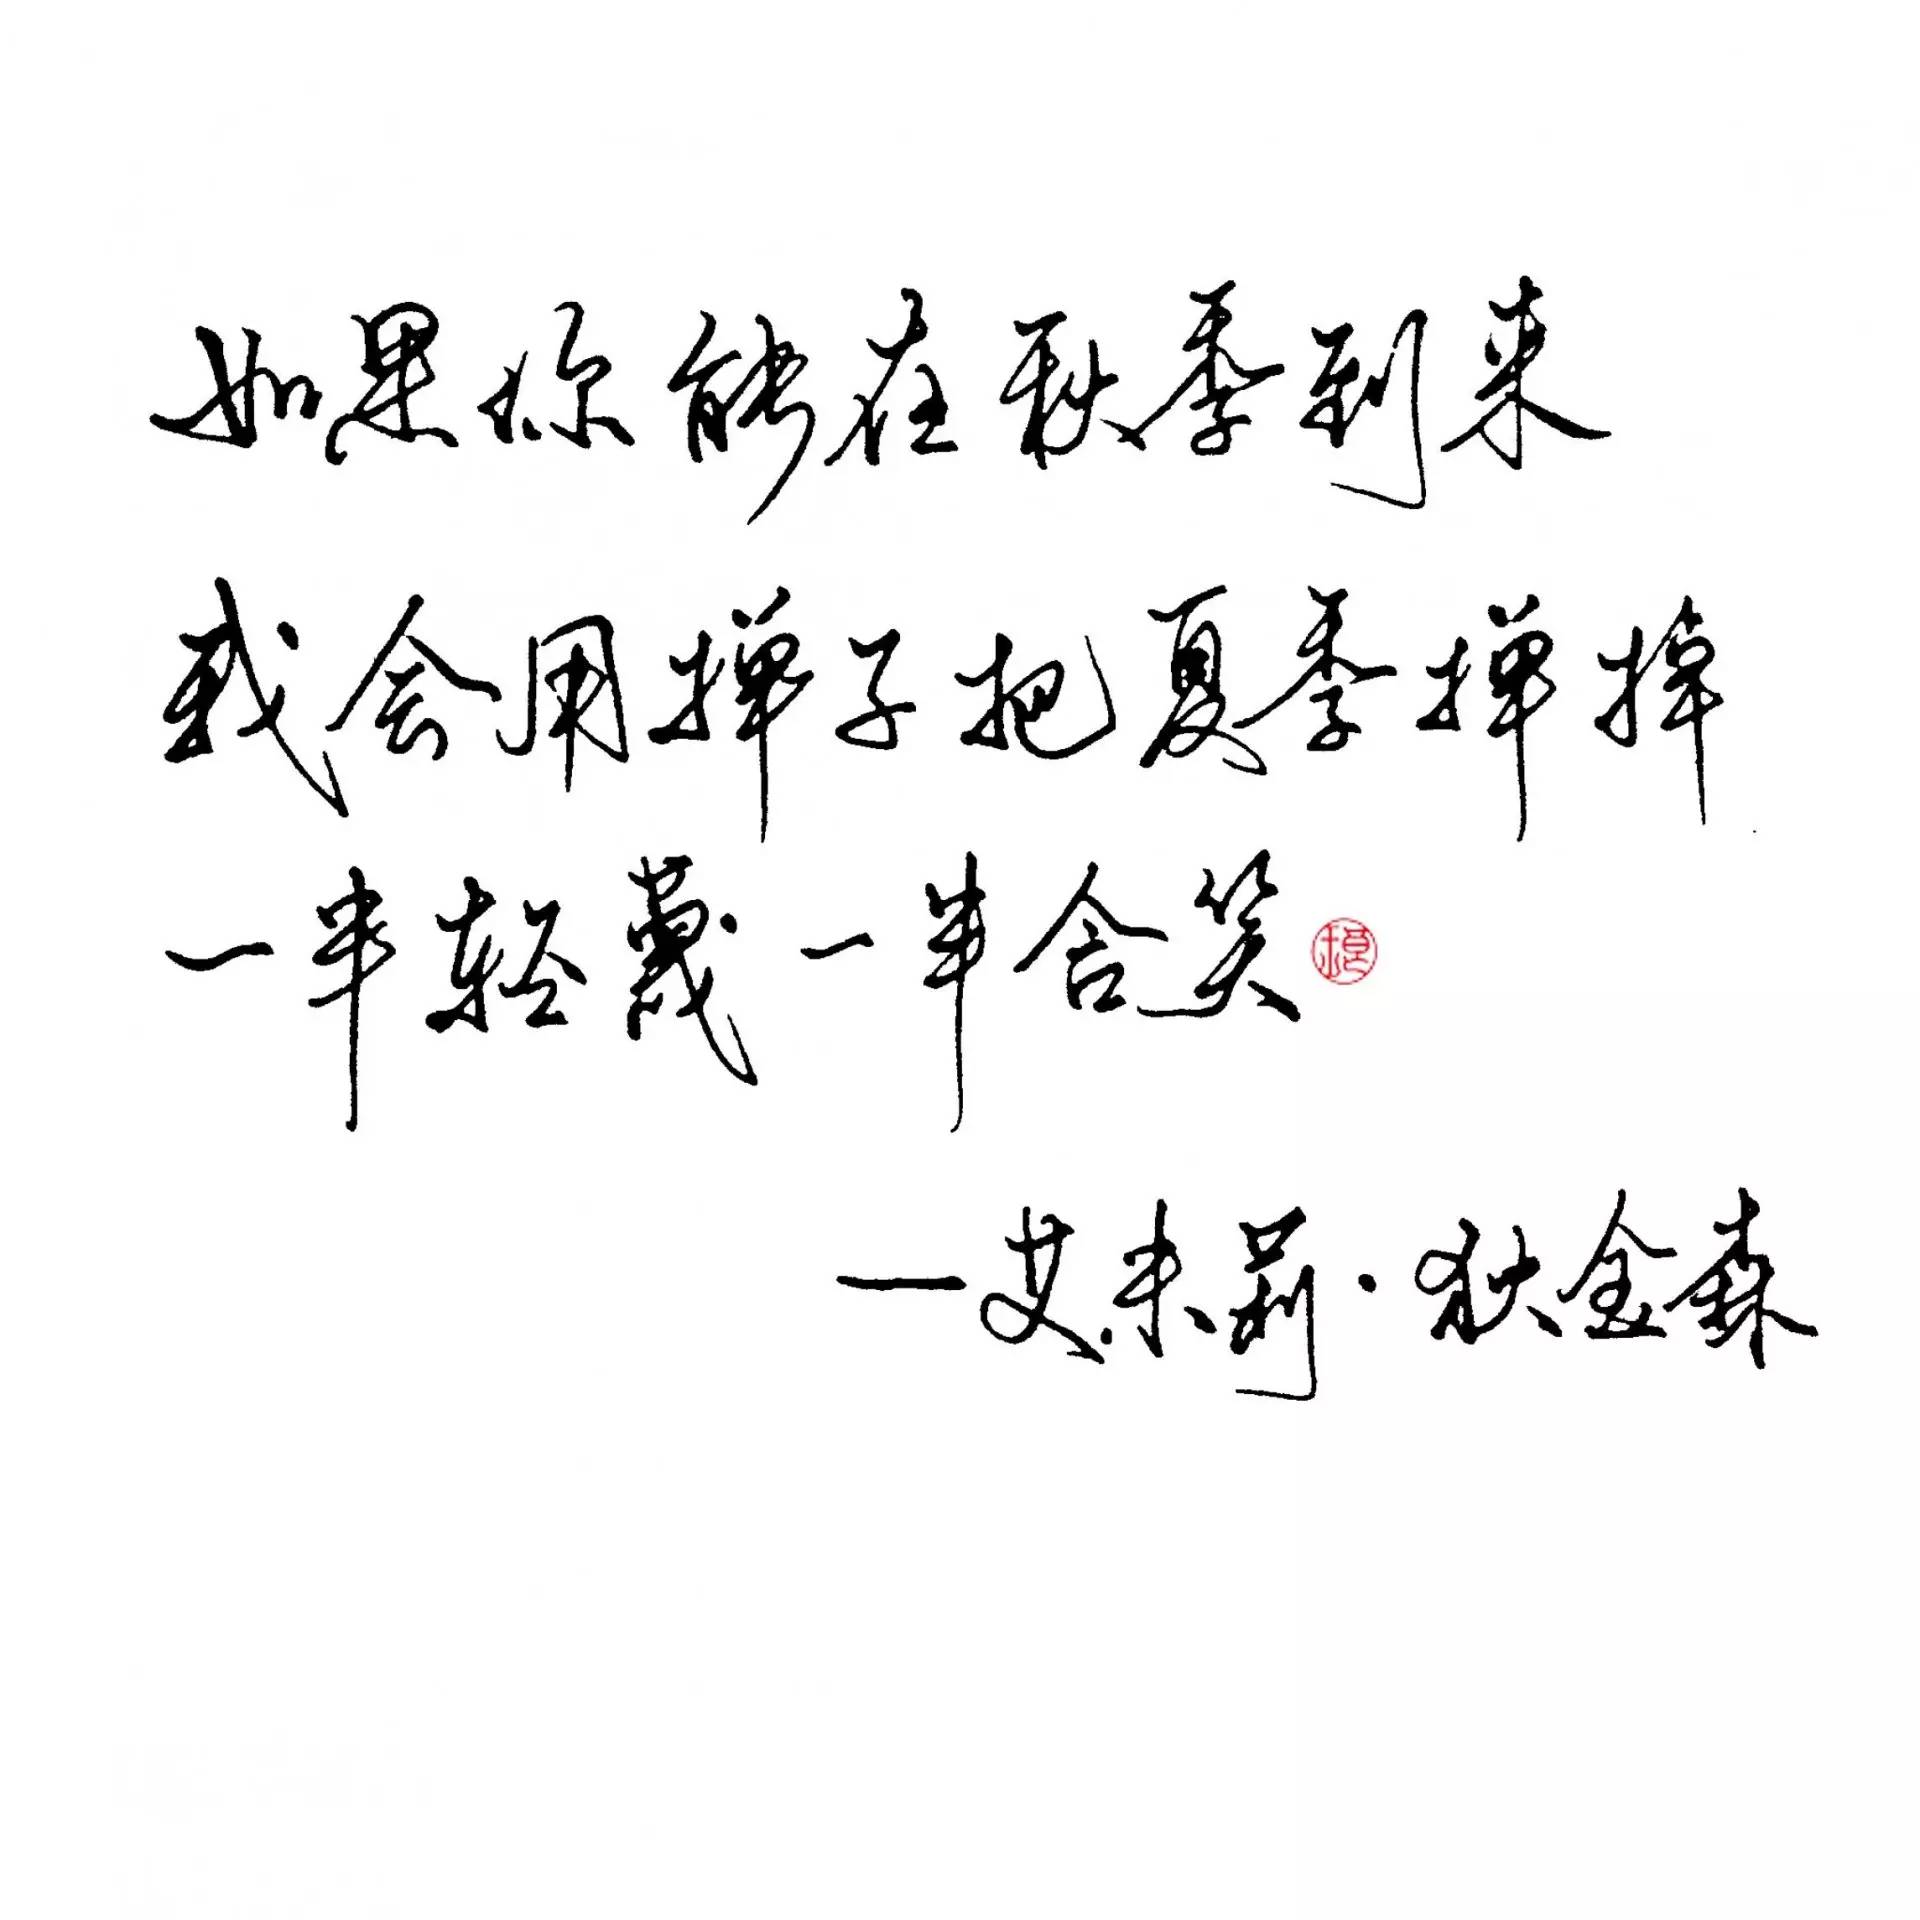 如果你能在秋季到来
我会用掸子把夏季掸掸
一半轻蔑一半含笑
一艾米莉·狄金森